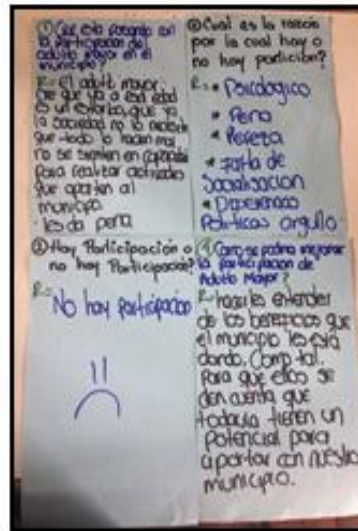 ① Que esta pasando con
la Participación del
adulto mayor en el
municipio?
R= el adulto mayor
cre que ya a esa edad
es un estorbo, que ya
la sociedad no lo necesita
que todo lo hacen mal
no se sienten en capacidad
para realizar actividades
que aporten al
municipio
les da pena
② Cual es la razón
por la cual hay o
no hay partición?
R= * Psicologico
* Pena
* Pereza
* Falta de
Socialización
*
Politicas orgullo
③ Hay Participación o
no hay Participación?
R=
No hay participación
④ Como se podria mejorar
la participación de
Adulto Mayor?
R= hacerles entender
de los beneficios que
el municipio les está
dando. Como tal.
Para que ellos se
den cuenta que
todavia tienen un
Potencial para
aportar con nuestro
municipio.